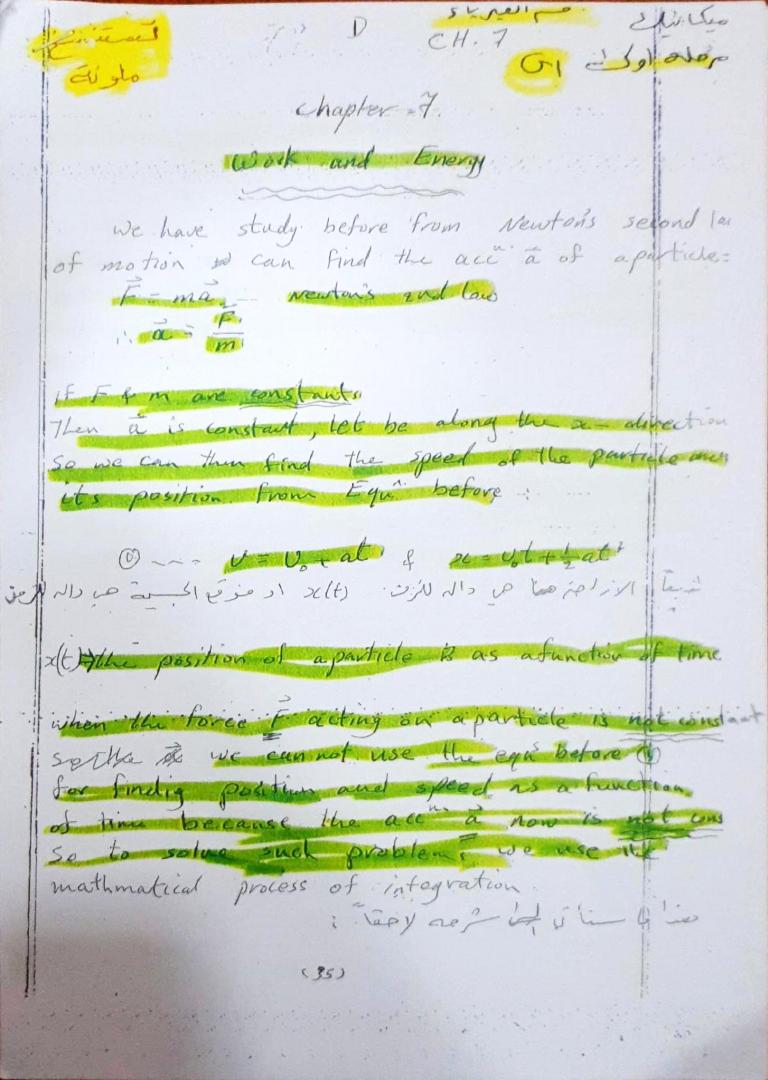 قسم الفيزياء
ميكانيك
D
CH. 7
مرحلة اولى
تستنسخ
ملونة
chapter -7.
Work and Energy
We have study before from Newton's second la
of motion can find the accⁿ. a⃗ of aparticle=
F⃗ = ma⃗ --- Newton's 2nd law
∴ a⃗ = F⃗/m
if F & m are constants
Then a⃗ is constant, let be along the x-direction
So we can then find the speed of the particle and
its position from Equⁿ. before :
① ---- v = v₀ + at & x = v₀t + ½at²
الازاحة هنا هي دالة للزمن. x(t) او موقع الجسيم هي دالة للزمن
x(t)⇒the position of aparticle is as afunction of time
when the force F⃗ acting on a particle is not constant
so the a⃗ we can not use the equⁿ before ①
for findig position and speed as a function
of time because the accⁿ a⃗ now is not cons
So to solve such problem, we use the
mathmatical process of integration.
هذا ما سنأتي الى شرحه لاحقاً :
(35)